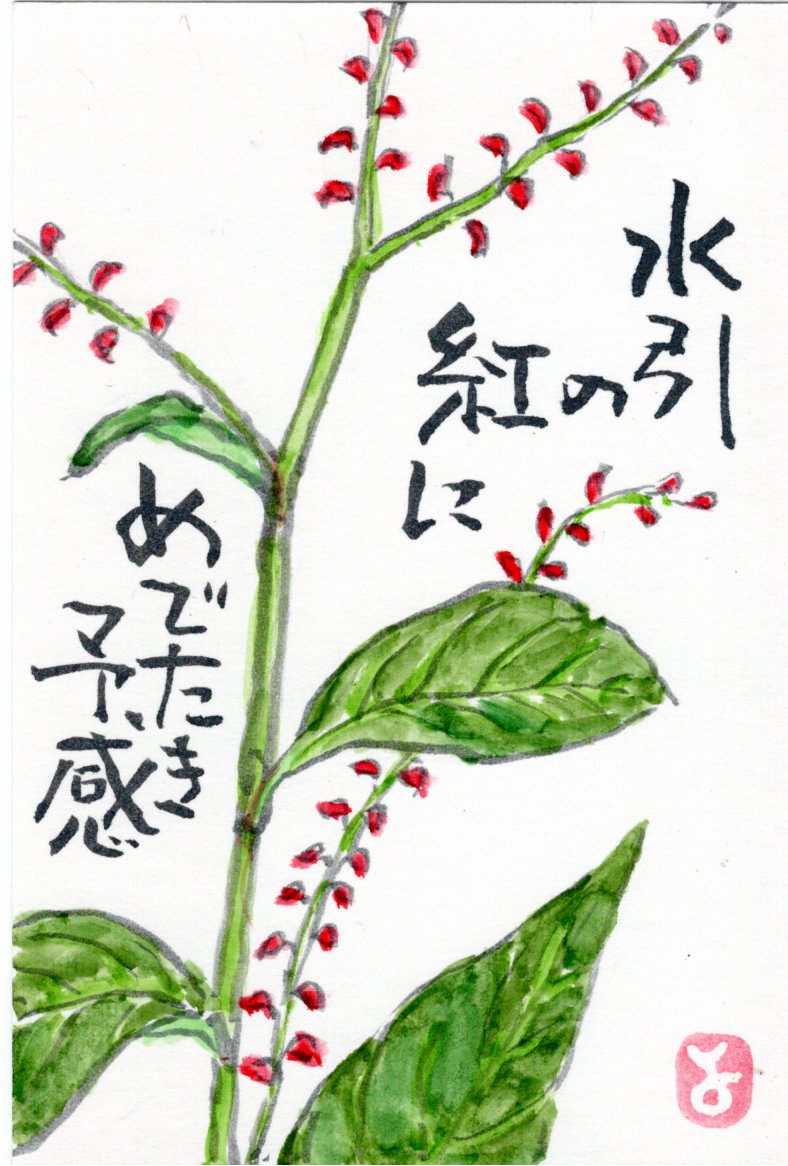 水引
の
紅
に
めでたき
予感